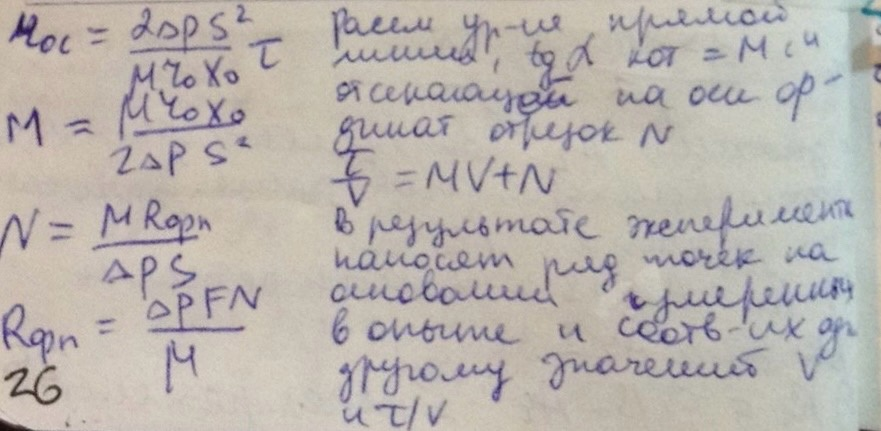 μос = 2ΔPS² / μr₀x₀ τ
M = μr₀x₀ / 2ΔPS²
N = μRфп / ΔPS
Rфп = ΔPFN / μ
26
Рассм ур-ие прямой
линии, tg α кот = M и
отсекающей на оси ор-
динат отрезок N
τ/V = MV+N
В результате эксперимента
наносят ряд точек на
основании измеренных
в опыте и соотв-их др
другому значений V
и τ/V